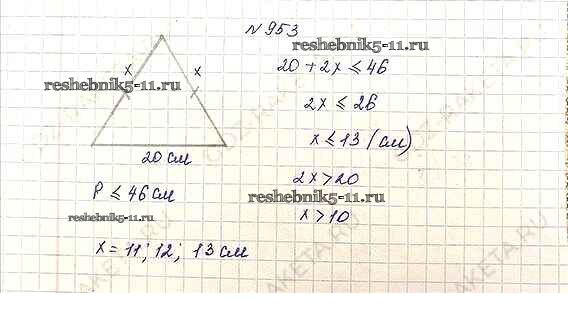 N 953
reshebnik5-11.ru
20 + 2x ≤ 46
x x
reshebnik5-11.ru
2x ≤ 26
x ≤ 13 (см)
20 см
2x > 20
P ≤ 46 см
reshebnik5-11.ru
x > 10
reshebnik5-11.ru
x = 11; 12; 13 см